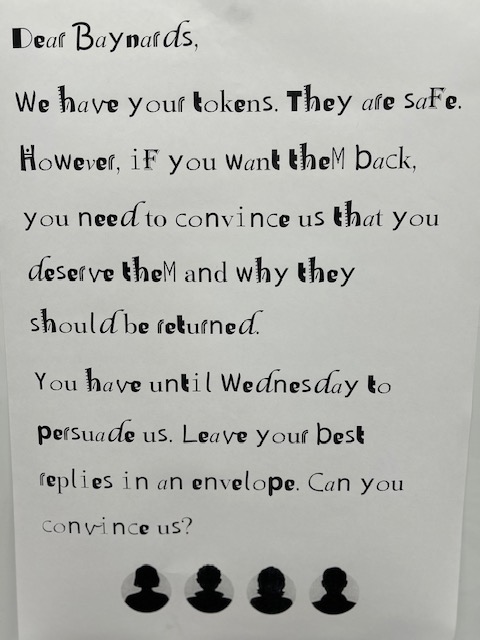 Dear Baynards,
We have your tokens. They are saFe.
However, iF you want theM back,
you need to convince us that you
deserve theM and why they
should be returned.
You have until Wednesday to
persuade us. Leave your best
replies in an envelope. Can you
convince us?